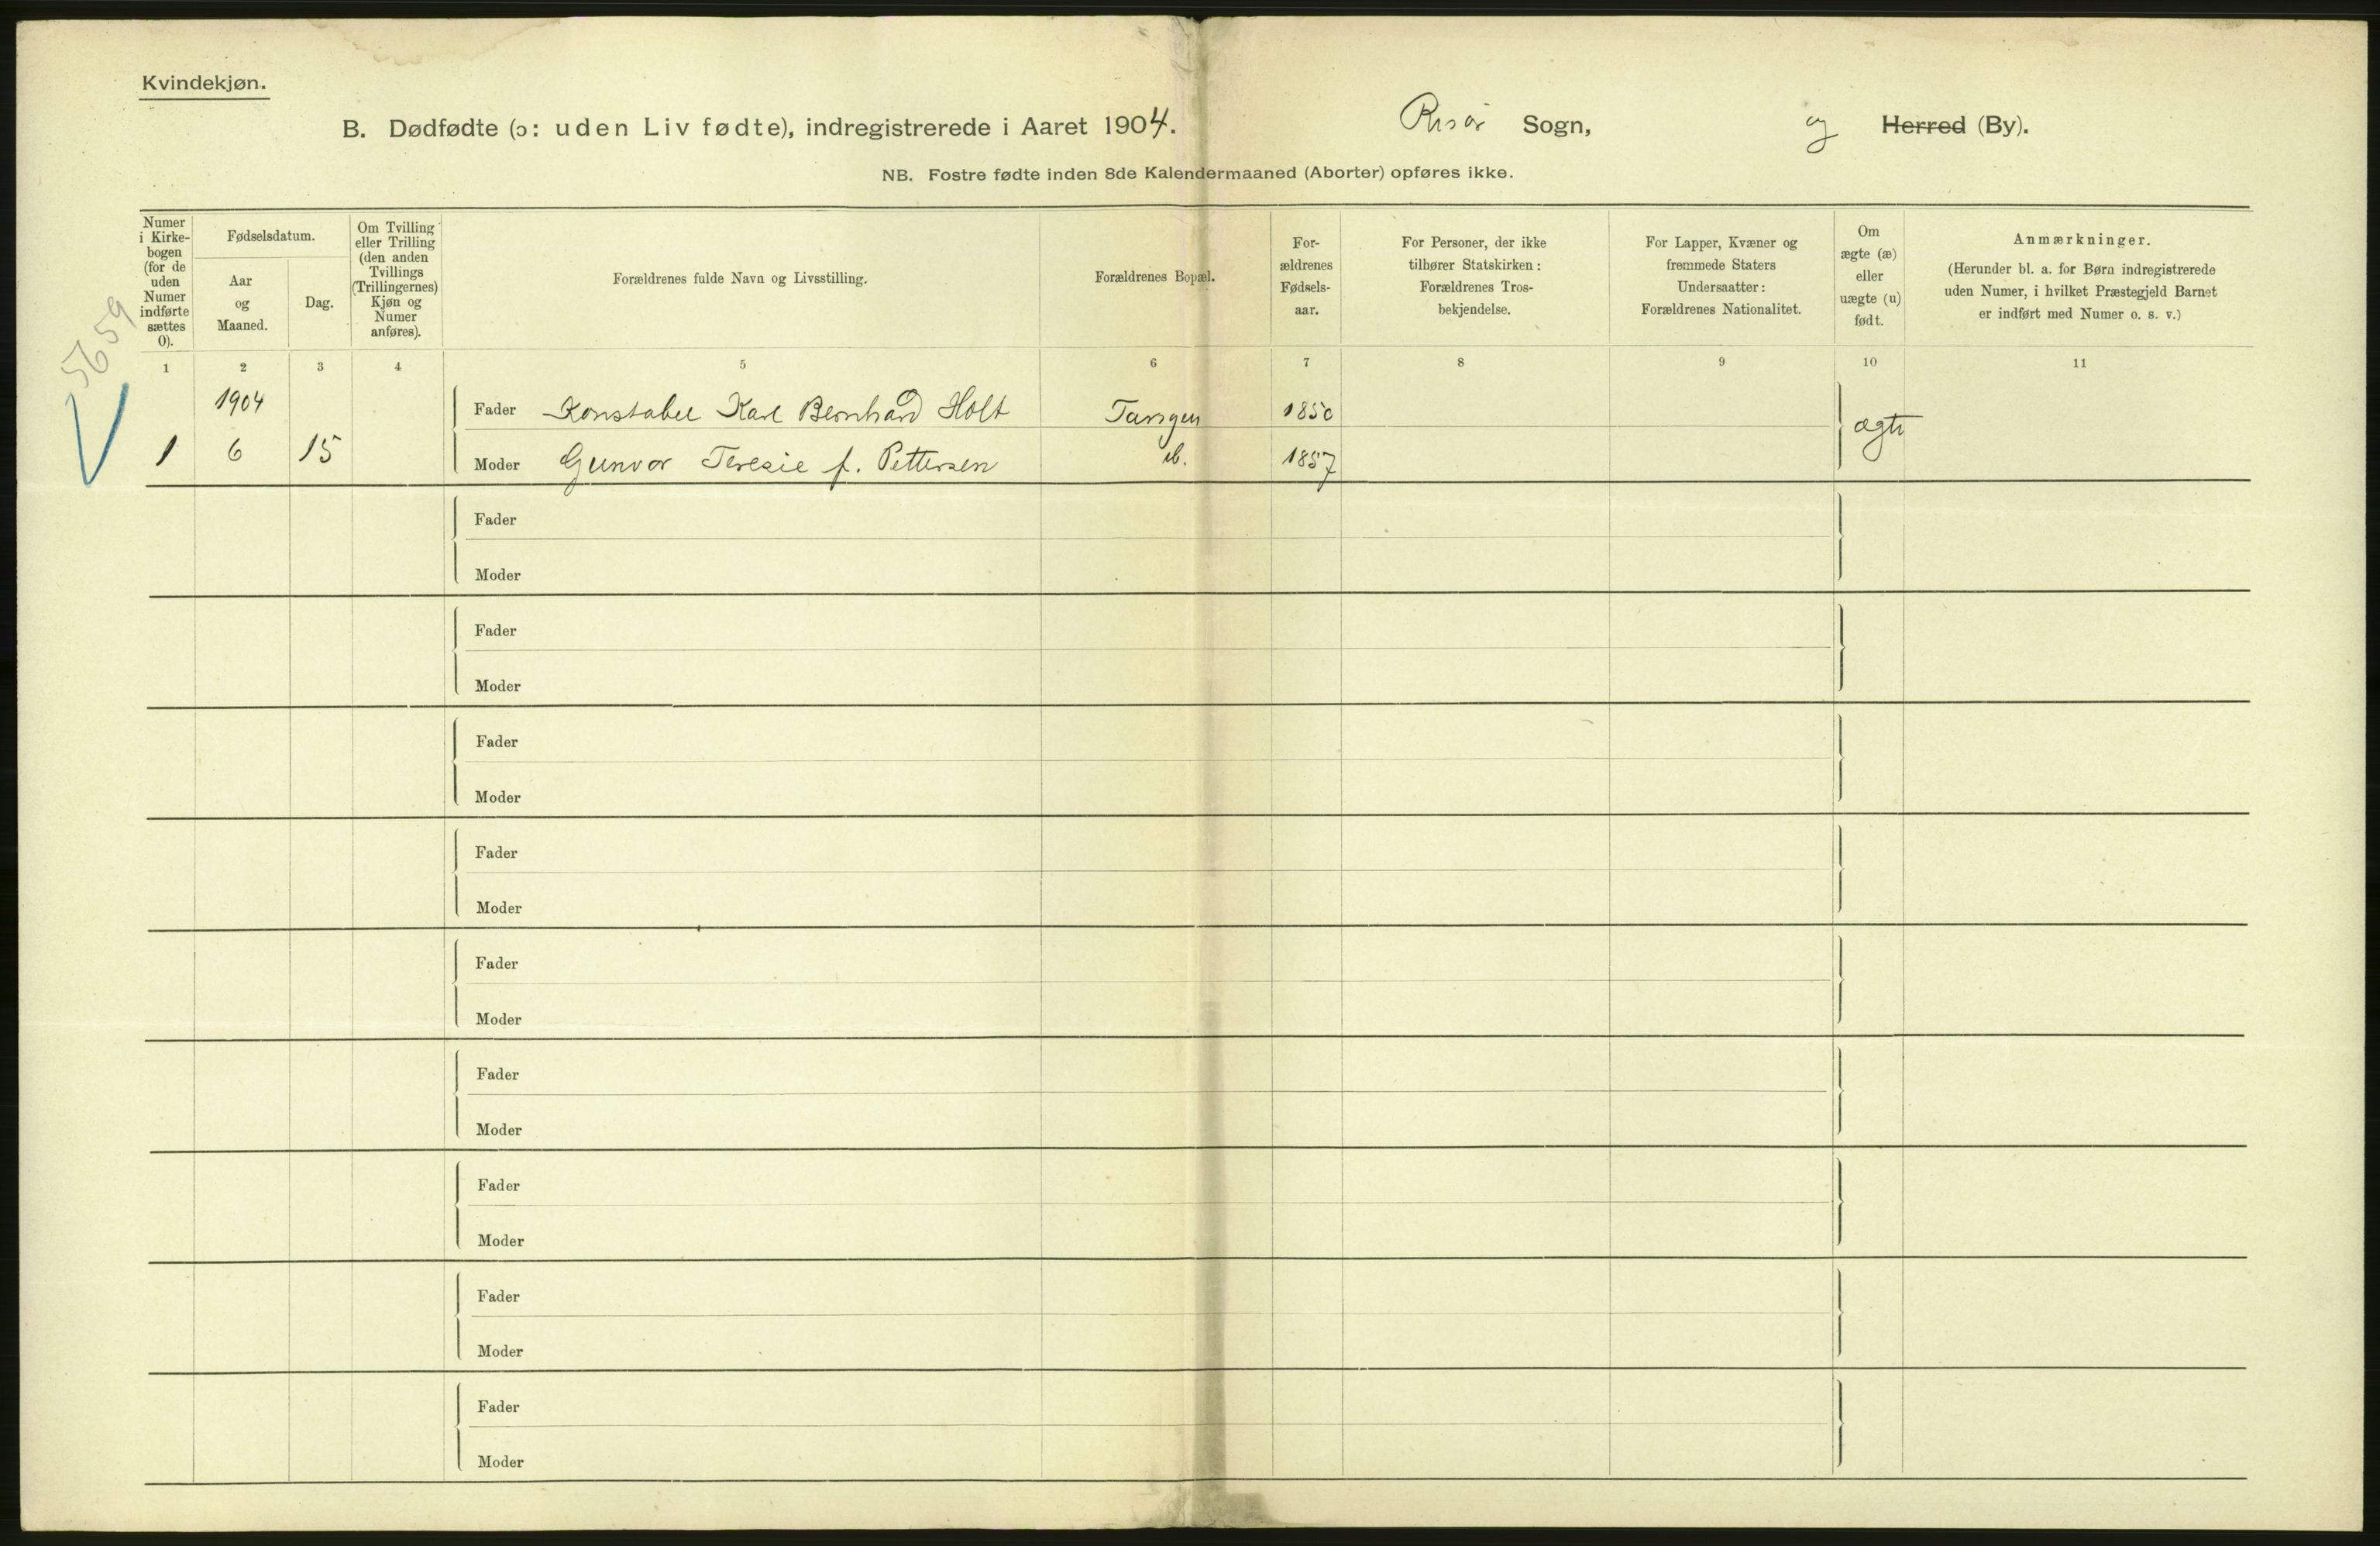 Kvindekjøn.
B. Dødfødte (ɔ: uden Liv fødte), indregistrerede i Aaret 1904. Risør Sogn, og Herred (By).
NB. Fostre fødte inden 8de Kalendermaaned (Aborter) opføres ikke.
Numer
i Kirke-
bogen
(for de
uden
Numer
indførte
sættes
0).
Fødselsdatum.
Aar
og
Maaned.
Dag.
Om Tvilling
eller Trilling
(den anden
Tvillings
(Trillingernes)
Kjøn og
Numer
anføres).
Forældrenes fulde Navn og Livsstilling.
Forældrenes Bopæl.
For-
ældrenes
Fødsels-
aar.
For Personer, der ikke
tilhører Statskirken:
Forældrenes Tros-
bekjendelse.
For Lapper, Kvæner og
fremmede Staters
Undersaatter:
Forældrenes Nationalitet.
Om
ægte (æ)
eller
uægte (u)
født.
Anmærkninger.
(Herunder bl. a. for Børn indregistrerede
uden Numer, i hvilket Præstegjeld Barnet
er indført med Numer o. s. v.)
5659
1 2 3 4 5 6 7 8 9 10 11
1904 Fader Konstabel Karl Bernhard Holt Tangen 1850
1 6 15 Moder Gunvor Teresie f. Pettersen ib. 1857 ægte
Fader
Moder
Fader
Moder
Fader
Moder
Fader
Moder
Fader
Moder
Fader
Moder
Fader
Moder
Fader
Moder
Fader
Moder